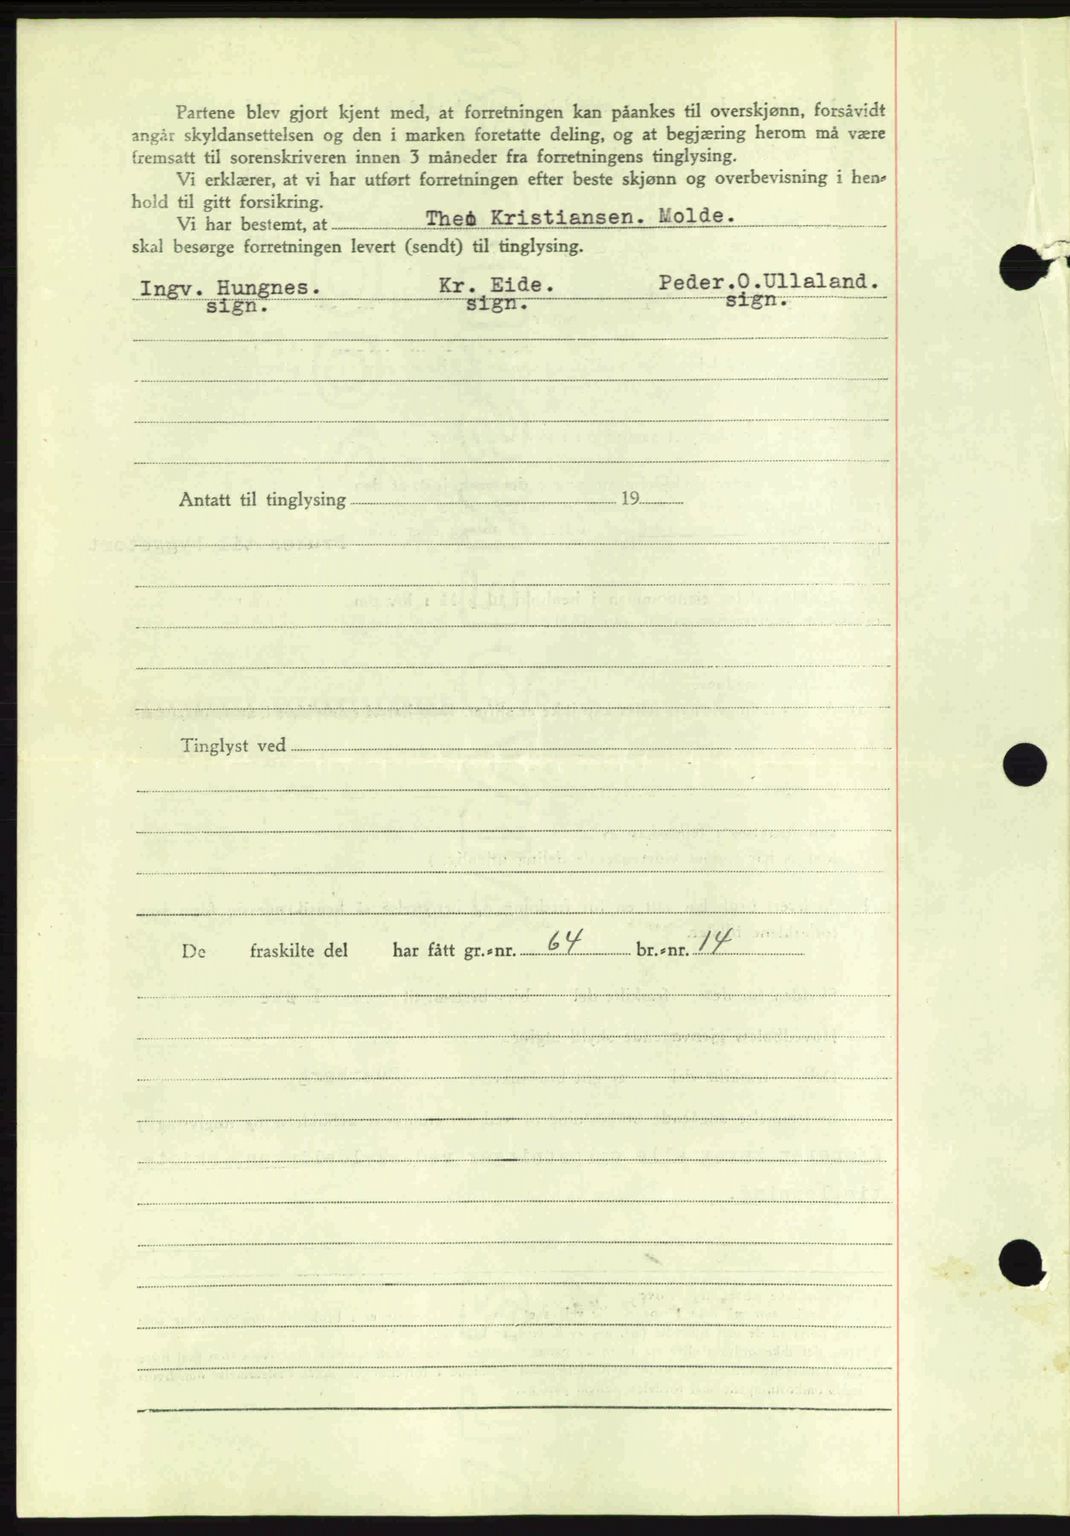 Partene blev gjort kjent med, at forretningen kan påankes til overskjønn, forsåvidt
angår skyldansettelsen og den i marken foretatte deling, og at begjæring herom må være
fremsatt til sorenskriveren innen 3 måneder fra forretningens tinglysing.
Vi erklærer, at vi har utført forretningen efter beste skjønn og overbevisning i hen-
hold til gitt forsikring.
Vi har bestemt, at Theo Kristiansen. Molde.
skal besørge forretningen levert (sendt) til tinglysing.
Ingv. Hungnes. Kr. Eide. Peder.O.Ullaland.
sign. sign. sign.
Antatt til tinglysing 19
Tinglyst ved
De fraskilte del har fått gr.-nr. 64 br.-nr. 14